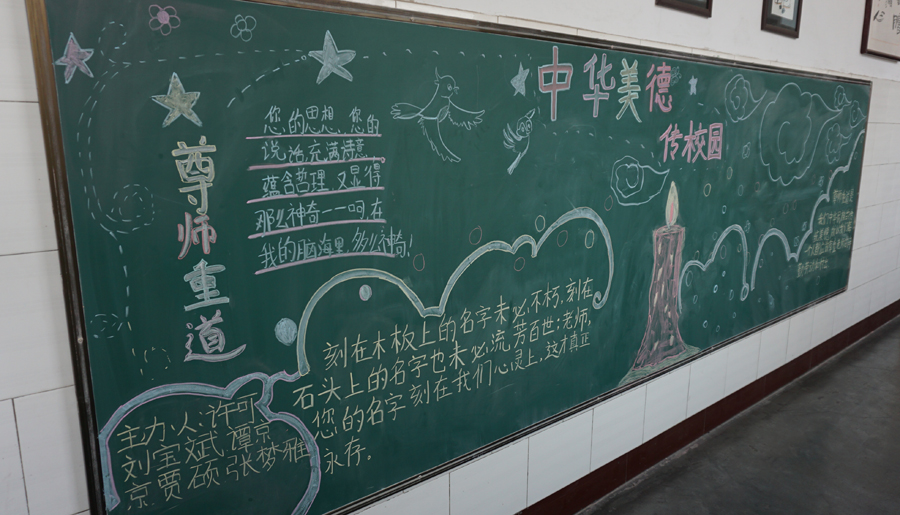 中华美德
传校园
尊师重道
您的思想、您的
说话,充满诗意,
蕴含哲理,又显得
那么神奇——呵,在
我的脑海里,多么神奇!
刻在木板上的名字未必不朽,刻在
石头上的名字也未必流芳百世;老师,
您的名字刻在我们心灵上,这才真正
永存。
主办人:许可
刘宝斌、谭京
京贾硕、张梦雅